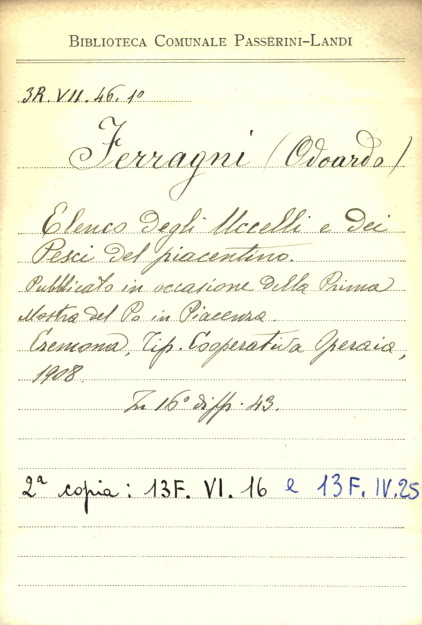 BIBLIOTECA COMUNALE PASSERINI-LANDI
3R. VII. 46. 1º
Ferragni (Odoardo)
Elenco degli Uccelli e dei
Pesci del piacentino.
Pubblicato in occasione della Prima
Mostra del Po in Piacenza.
Cremona, Tip. Cooperativa Operaia,
1908.
In 16º di pp. 43.
2ª copia: 13F. VI. 16 e 13F. IV. 25